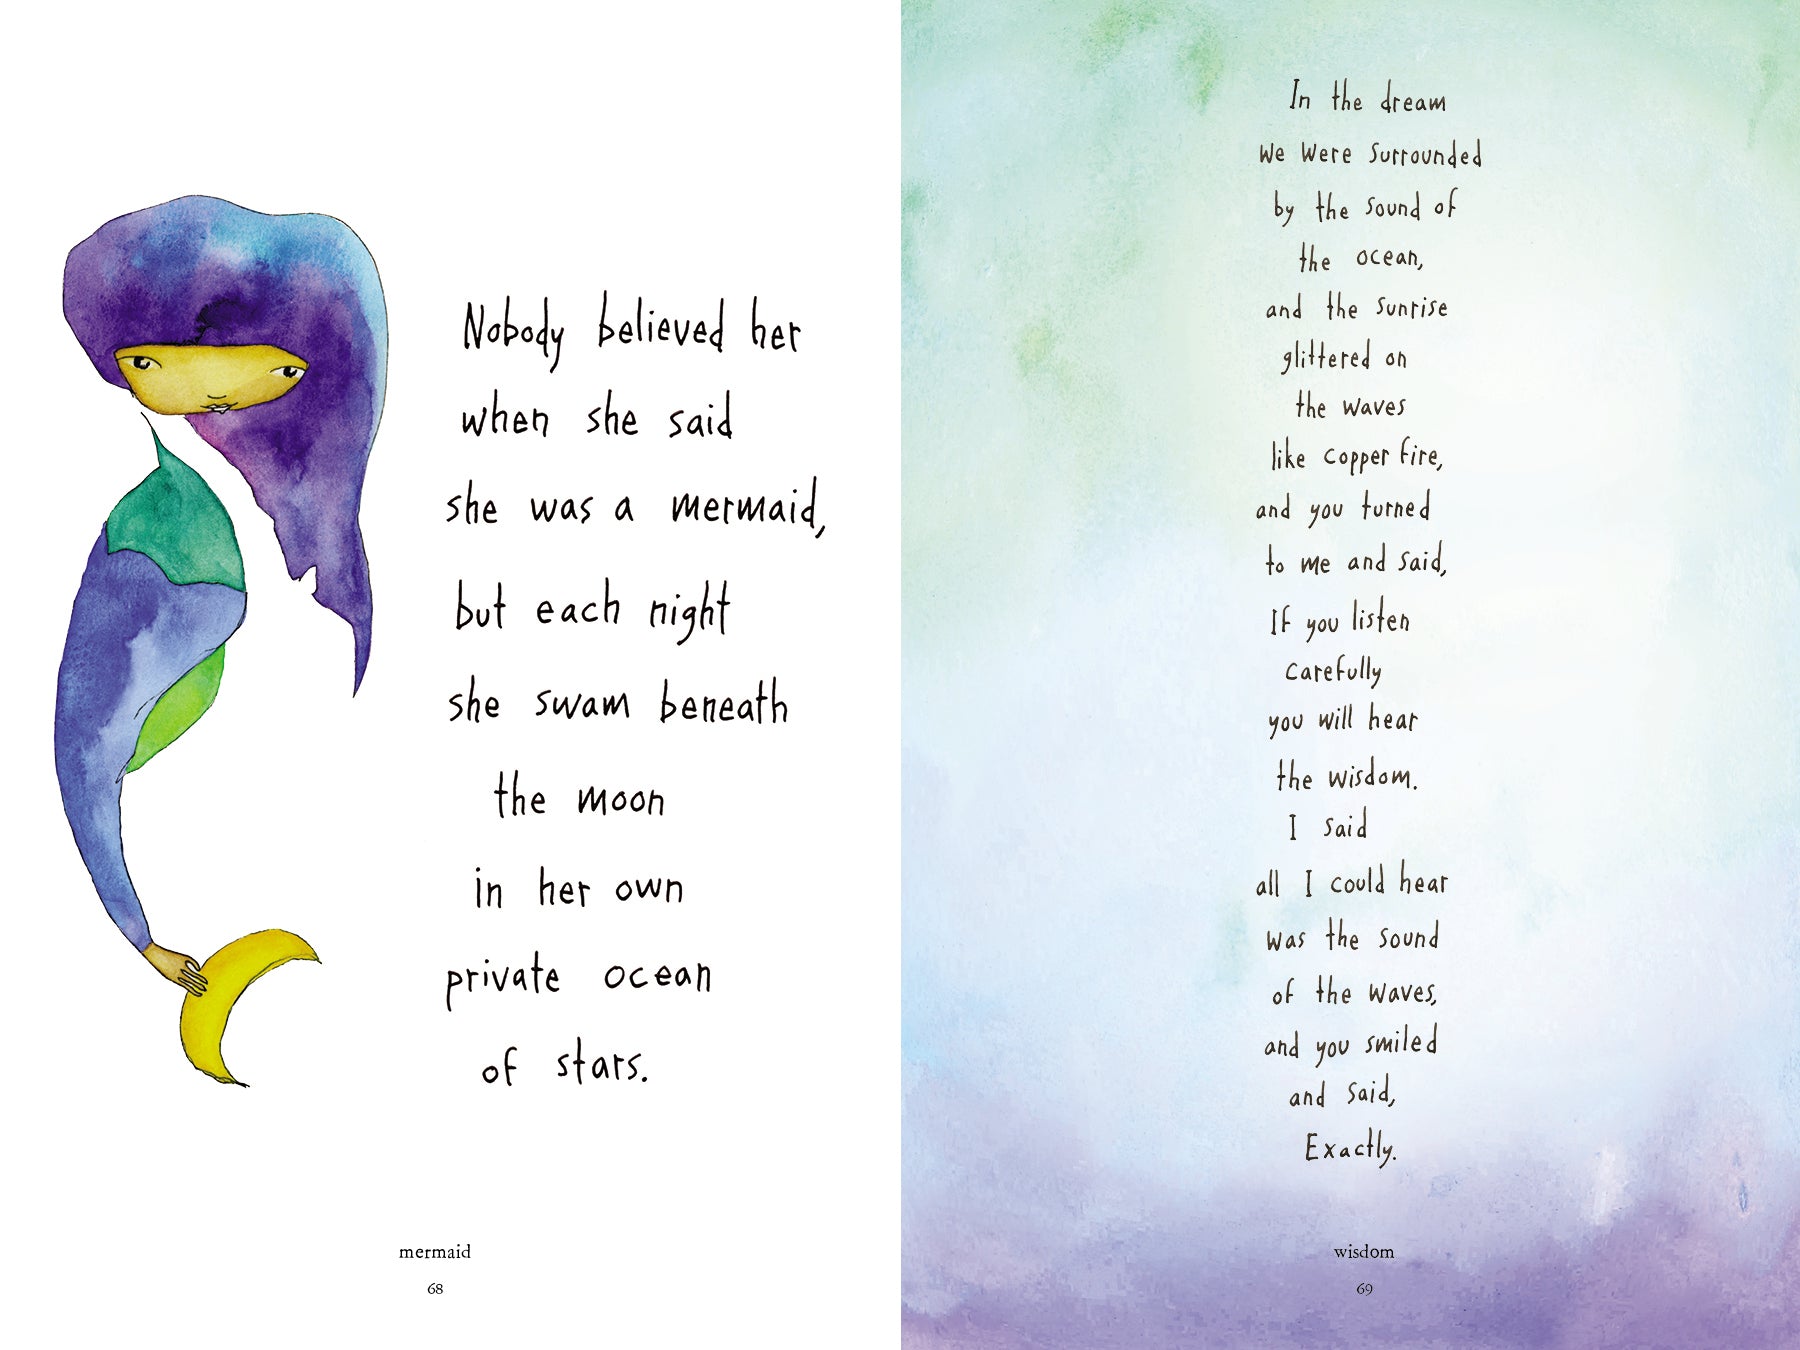 Nobody believed her
when she said
she was a mermaid,
but each night
she swam beneath
the moon
in her own
private ocean
of stars.
mermaid
68
In the dream
we were surrounded
by the sound of
the ocean,
and the sunrise
glittered on
the waves
like copper fire,
and you turned
to me and said,
If you listen
carefully
you will hear
the wisdom.
I said
all I could hear
was the sound
of the waves,
and you smiled
and said,
Exactly.
wisdom
69